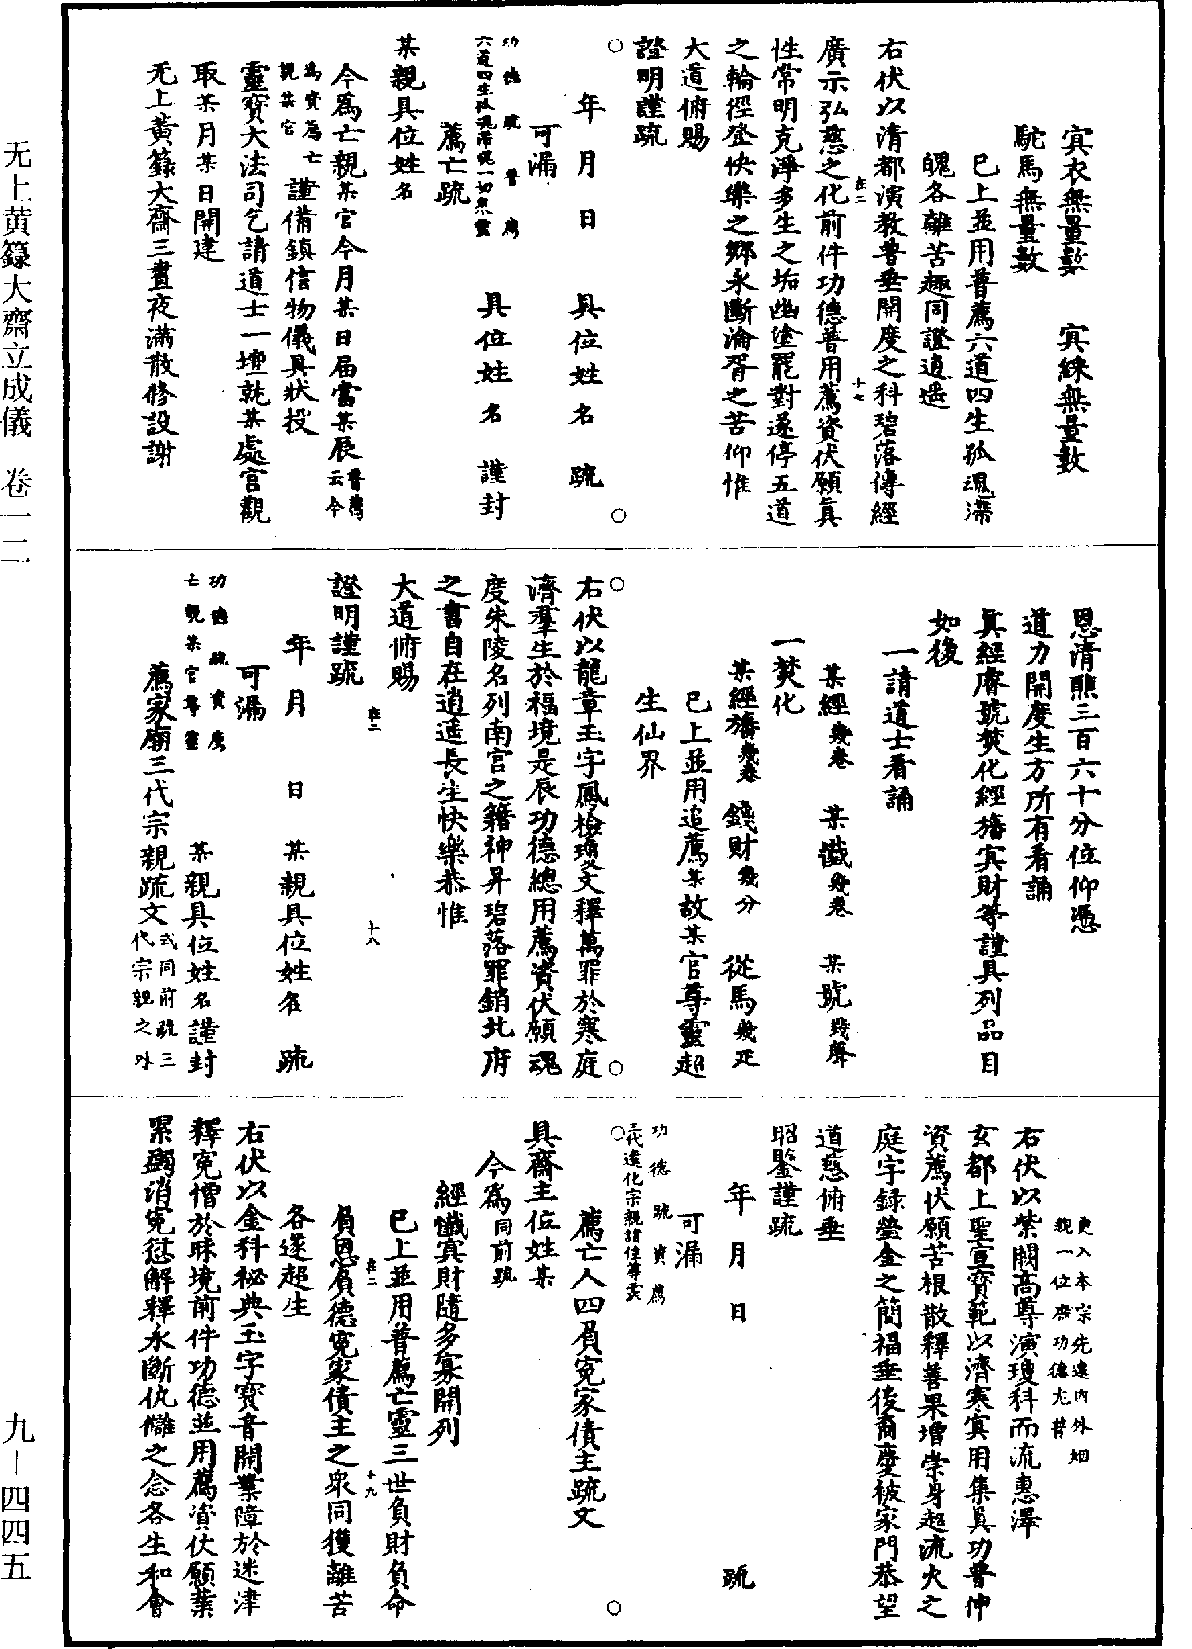 冥衣無量數　冥綵無量數
駝馬無量數
已上並用普薦六道四生孤魂滯
魄各離苦趣同證逍遙
右伏以清都演教普垂開度之科碧落傳經
廣示弘慈之化前件功德普用薦資伏願眞
性常明克淨多生之垢幽塗罷對遂停五道
之輪徑登快樂之鄉永斷淪胥之苦仰惟
大道俯賜
證明謹疏
年　月　日　具位姓名　疏
可漏
功德疏普薦
六道四生孤魂滯魄一切衆靈
具位姓名　謹封
薦亡疏
某親具位姓名
今爲亡親某官今月某日屆當某辰普薦云今
爲資薦亡親某官謹備鎮信物儀具狀投
靈寶大法司乞請道士一壇就某處宮觀
取某月某日開建
无上黃籙大齋三晝夜滿散修設謝
恩清醮三百六十分位仰憑
道力開度生方所有看誦
眞經膚號焚化經旛冥財等謹具列品目
如後
一請道士看誦
某經幾卷　某懺幾卷　某號幾聲
一焚化
某經旛幾卷　錢財幾分　從馬幾疋
已上並用追薦某故某官尊靈超
生仙界
右伏以龍章玉字鳳檢瓊文釋萬罪於寒庭
濟羣生於福境是辰功德總用薦資伏願魂
度朱陵名列南宮之籍神昇碧落罪銷北府
之書自在逍遙長生快樂恭惟
大道俯賜
證明謹疏
年　月　日　某親具位姓名　疏
可漏
功德疏資薦
亡親某官尊靈
某親具位姓名謹封
薦家廟三代宗親疏文式同前疏三代宗親之外
更入本宗先遠內外姻
親一位庶功德尤普
右伏以紫闕高尊演瓊科而流惠澤
玄都上聖宣寶範以濟寒冥用集眞功普伸
資薦伏願苦根散釋善果增崇身超流火之
庭字錄瑩金之簡福垂後裔慶被家門恭望
道慈俯垂
昭鑒謹疏
年　月　日　疏
可漏
功德疏資薦
三代遠化宗親諸位尊靈
薦亡人四負冤家債主疏文
具齋主位姓某
今爲同前疏
經懺冥財隨多寡開列
已上並用普薦亡靈三世負財負命
負恩負德冤家債主之衆同獲離苦
各遂超生
右伏以金科秘典玉字寶音開業障於迷津
釋冤憎於昧境前件功德並用薦資伏願業
累蠲消冤愆解釋永斷仇讎之念各生和會
无上黄籙大齋立成儀　卷一二
九—四四五
在二　十七
在二　十八
在二　十九